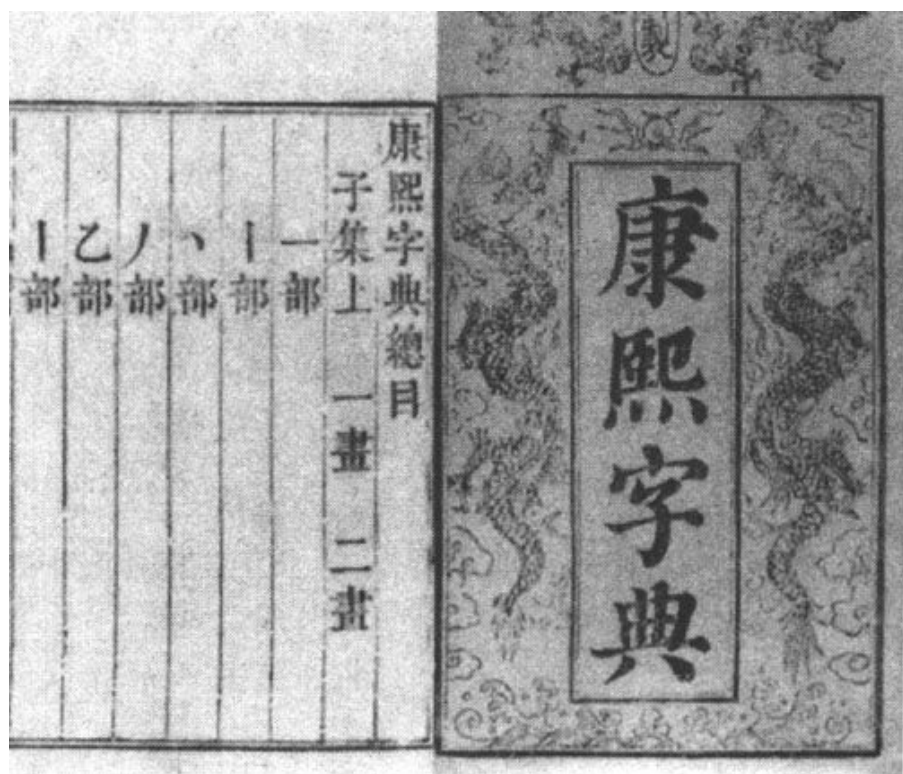 製
康熙字典
康熙字典總目
子集上 一畫 二畫
一部
丨部
丶部
丿部
乙部
亅部